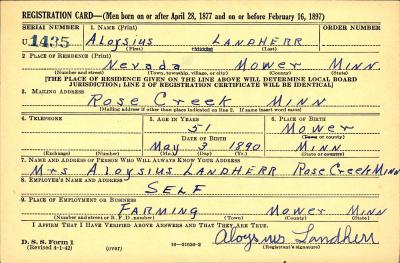 REGISTRATION CARD—(Men born on or after April 28, 1877 and on or before February 16, 1897)
SERIAL NUMBER 1. NAME (Print) ORDER NUMBER
U 1435 Aloysius LANDHERR
(First) (Middle) (Last)
2. PLACE OF RESIDENCE (Print)
Nevada Mower Minn
(Number and street) (Town, township, village, or city) (County) (State)
[THE PLACE OF RESIDENCE GIVEN ON THE LINE ABOVE WILL DETERMINE LOCAL BOARD
JURISDICTION; LINE 2 OF REGISTRATION CERTIFICATE WILL BE IDENTICAL]
3. MAILING ADDRESS
Rose Creek MINN
[Mailing address if other than place indicated on line 2. If same insert word same]
4. TELEPHONE 5. AGE IN YEARS 6. PLACE OF BIRTH
51 Mower
DATE OF BIRTH (Town or county)
May 3 1890 Minn
(Exchange) (Number) (Mo.) (Day) (Yr.) (State or country)
7. NAME AND ADDRESS OF PERSON WHO WILL ALWAYS KNOW YOUR ADDRESS
Mrs Aloysius LANDHERR Rose Creek Minn
8. EMPLOYER'S NAME AND ADDRESS
SELF
9. PLACE OF EMPLOYMENT OR BUSINESS
FARMING Mower Minn
(Number and street or R. F. D. number) (Town) (County) (State)
I AFFIRM THAT I HAVE VERIFIED ABOVE ANSWERS AND THAT THEY ARE TRUE.
D. S. S. Form 1 Aloysius Landherr
(Revised 4-1-42) (over) (Registrant's signature)